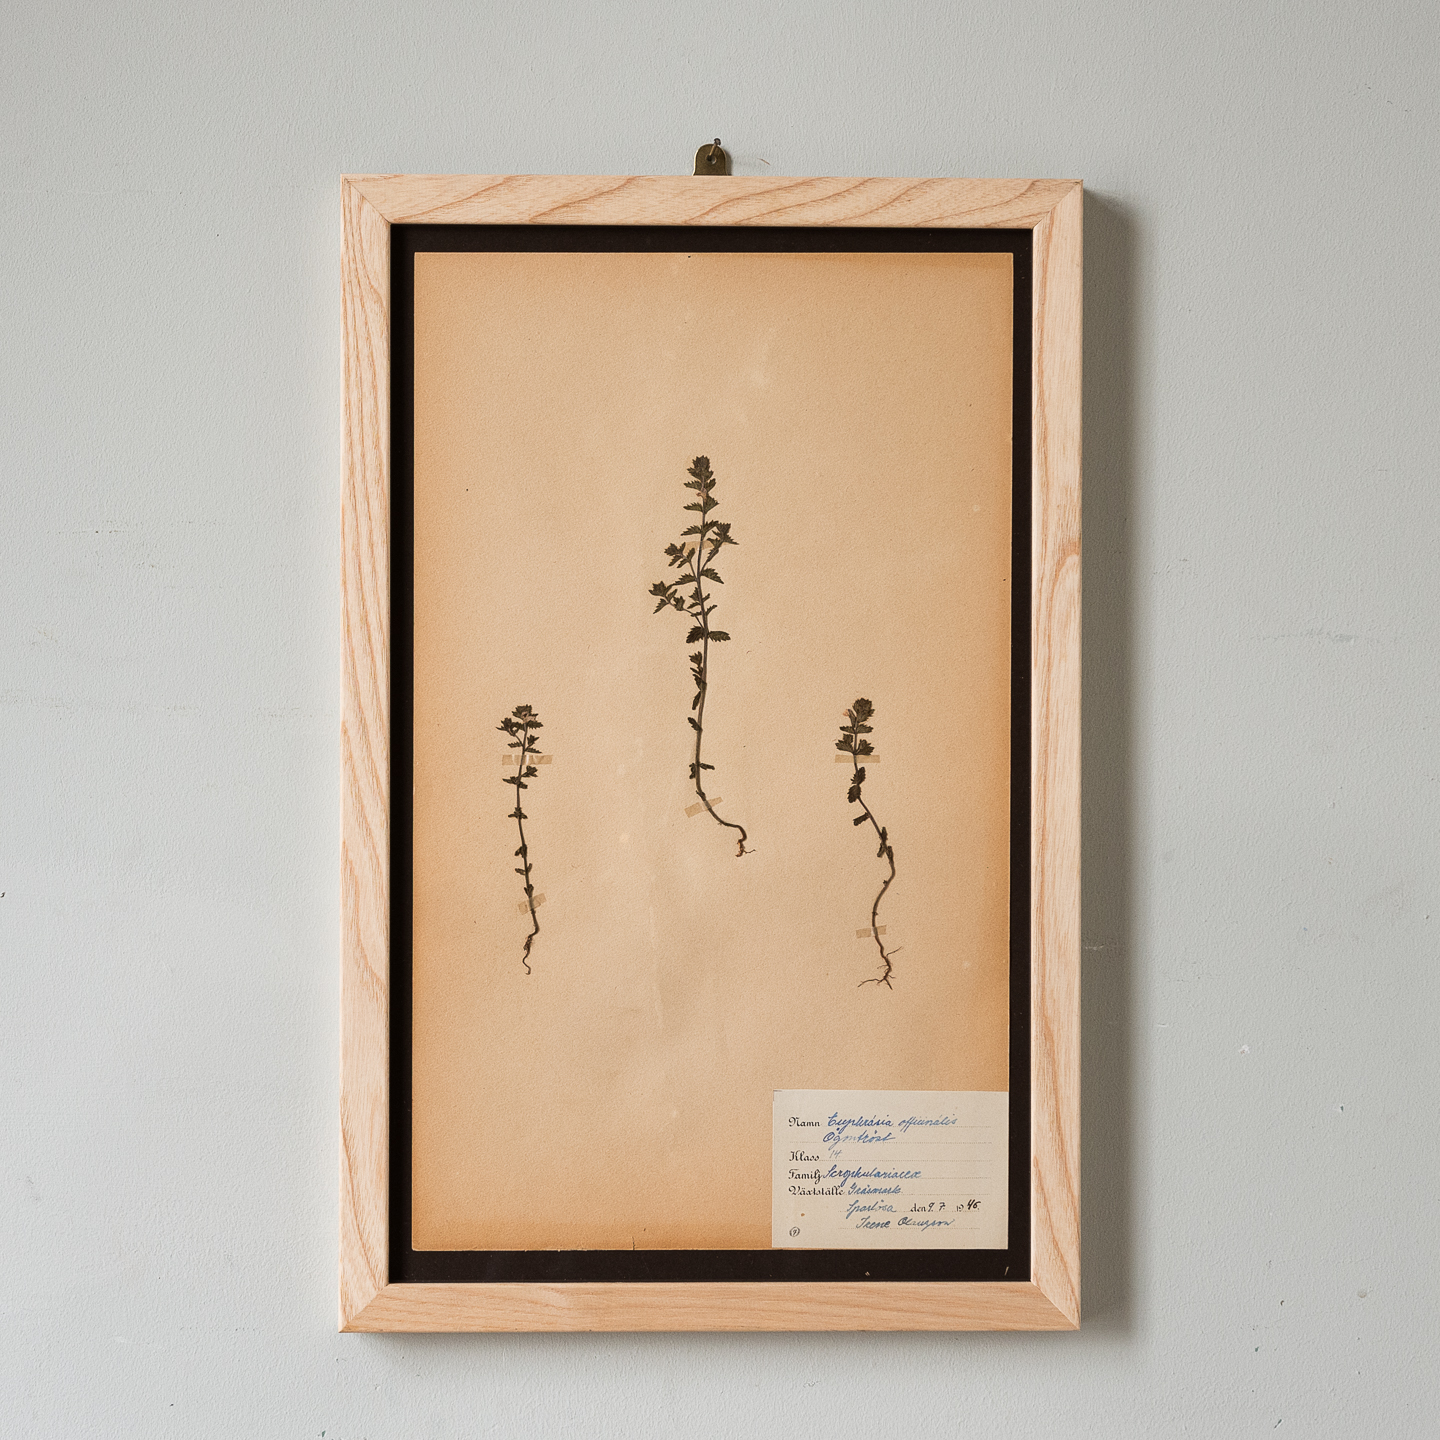 Namn Euphrásia officinális
Ögontröst
Klass 14
Familj Scrophulariaceæ
Växtställe Gräsmark
den 9. 7. 1946.
Irene